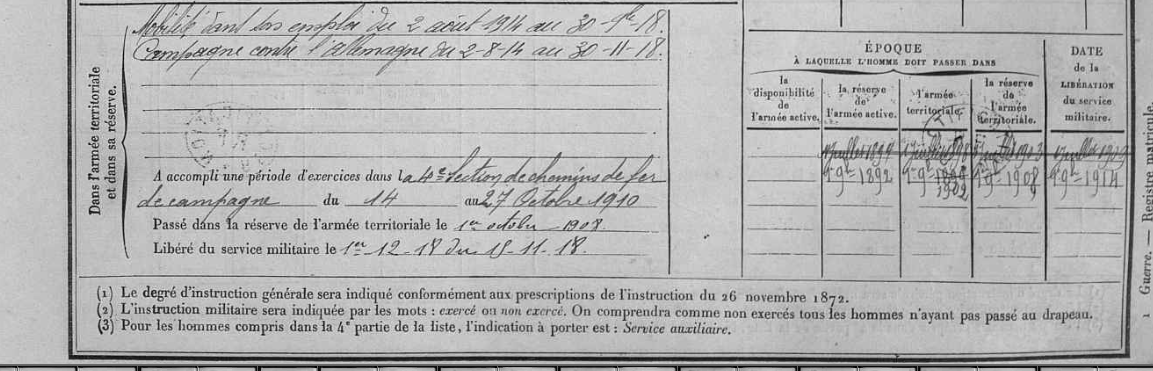 Mobilisé dans son emploi du 2 août 1914 au 30 - 9bre - 18.
Campagne contre l'Allemagne du 2-8-14 au 30-11-18.
Dans l'armée territoriale
et dans sa réserve.
A accompli une période d'exercices dans la 4e Section de chemins de fer
de campagne du 14 au 27 Octobre 1910
Passé dans la réserve de l'armée territoriale le 1er octobre 1908
Libéré du service militaire le 1er-12-18 du 15-11-18.
ÉPOQUE
À LAQUELLE L'HOMME DOIT PASSER DANS
la disponibilité de l'armée active.
la réserve de l'armée active.
l'armée territoriale.
la réserve de l'armée territoriale.
DATE de la LIBÉRATION du service militaire.
1 juillet 1903
1 9bre 1892 1 9bre 1902 1 9bre 1908 1 9bre 1914
(1) Le degré d'instruction générale sera indiqué conformément aux prescriptions de l'instruction du 26 novembre 1872.
(2) L'instruction militaire sera indiquée par les mots : exercé ou non exercé. On comprendra comme non exercés tous les hommes n'ayant pas passé au drapeau.
(3) Pour les hommes compris dans la 4e partie de la liste, l'indication à porter est : Service auxiliaire.
1 Guerre. — Registre matricule.